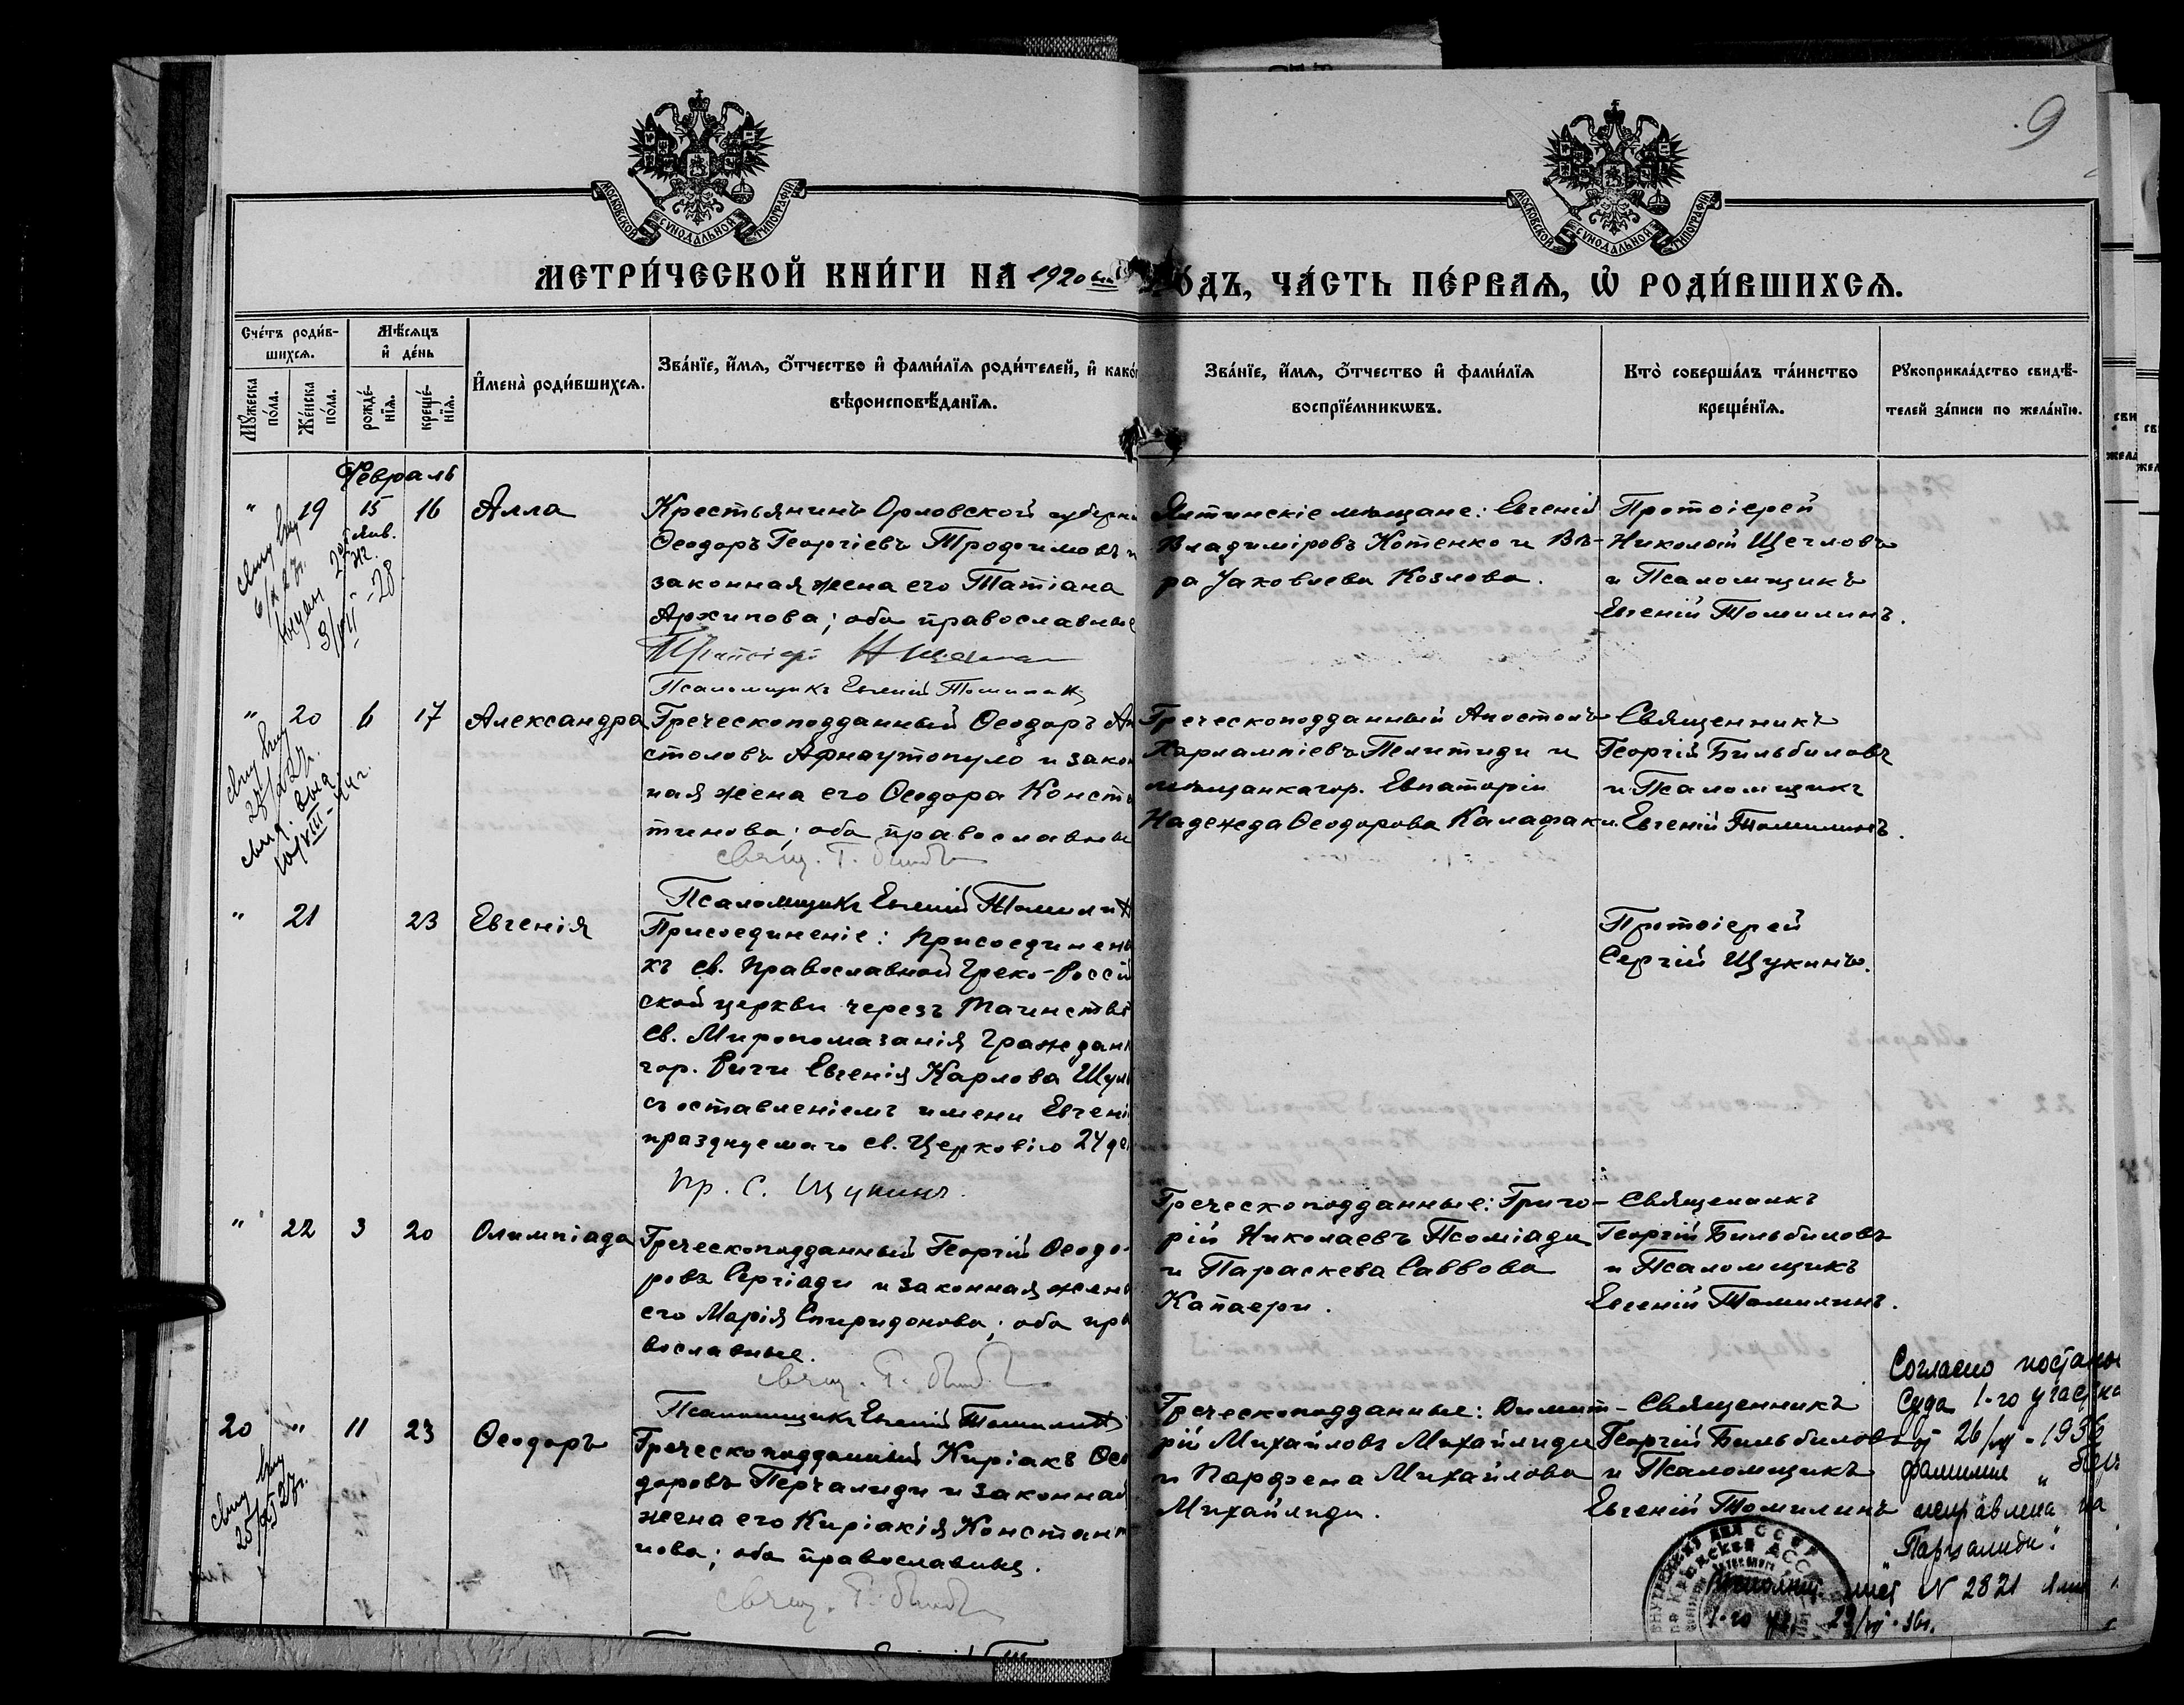 9
МОСКОВСКОЙ СѴНОДАЛЬНОЙ ТИПОГРАФІИ
МОСКОВСКОЙ СѴНОДАЛЬНОЙ ТИПОГРАФІИ
МЕТРИ́ЧЕСКОЙ КНИ́ГИ НА 1920
О́ДЪ, ЧА́СТЬ ПЕ́РВАѦ, Ѡ҆ РОДИ́ВШИХСѦ.
Сче́тъ роди́в-
шихсѧ.
Мѣ́сѧцъ
и҆ де́нь
Мꙋ́жеска
по́ла.
Же́нска
по́ла.
рожде́-
нїѧ.
креще́-
нїѧ.
И҆мена̀ роди́вшихсѧ.
Зва́нїе, и҆́мѧ, ѻ҆́тчество и҆ фами́лїѧ роди́телей, и҆ како́
вѣроисповѣ́данїѧ.
Зва́нїе, и҆́мѧ, ѻ҆́тчество и҆ фами́лїѧ
воспрїе́мникѡвъ.
Кто̀ соверша́лъ та́инство
креще́нїѧ.
Рꙋкоприкла́дство свидѣ́-
телей за́писи по жела́нїю.
Февраль
" 19 15 16 Алла
Крестьянинъ Орловской губерні
Ѳеодоръ Георгіевъ Трофимовъ и
законная жена его Татіана
Архипова; оба православные
Псаломщикъ Евгеній Томилинъ
Ялтинскіе мѣщане: Евгеній
Владиміровъ Котенко и Вѣ-
ра Іаковлева Козлова.
Протоіерей
Николай Щегловъ
и Псаломщикъ
Евгеній Томилинъ.
" 20 6 17 Александра
Греческоподданный Ѳеодоръ Ап
столовъ Арнаутопуло и закон
ная жена его Ѳеодора Конста
тинова; оба православные
свящ. Г.
Псаломщикъ Евгеній Томилинъ
Греческоподданный Апостолъ
Харлампіевъ Пелитиди и
мѣщанка гор. Евпаторіи
Надежда Ѳеодорова Калафаки.
Священникъ
Георгій Бильбиловъ
и Псаломщикъ
Евгеній Томилинъ.
" 21 23 Евгенія
Присоединеніе: Присоединена
къ св. Православной Греко-Россій
ской церкви черезъ Таинство
Св. Миропомазанія Граждан
гор. Риги Евгенія Карлова Шул
съ оставленіемъ имени Евгені
празднуемаго св. Церковію 24 де
Пр. С. Щукинъ.
Протоіерей
Сергій Щукинъ.
" 22 3 20 Олимпіада
Греческоподданный Георгій Ѳеодо-
ровъ Сергіади и законная жена
его Марія Спиридонова; оба пра
вославные.
свящ. Г.
Псаломщикъ Евгеній Томилинъ
Греческоподданные: Григо-
рій Николаевъ Псоміади
и Параскева Саввова
Капаери.
Священникъ
Георгій Бильбиловъ
и Псаломщикъ
Евгеній Томилинъ.
20 " 11 23 Ѳеодоръ
Греческоподданный Киріакъ Ѳео
доровъ Перчалиди и законная
жена его Киріакія Констант
нова; оба православные.
свящ. Г.
Греческоподданные: Димит-
рій Михайловъ Михайлиди
и Парфена Михайлова
Михайлиди.
Священникъ
Георгій Бильбиловъ
и Псаломщикъ
Евгеній Томилинъ
Согласно постанов
Суда 1-го участка
26/VII - 1936
фамилия
исправлена на
"Парчалиди".
N 2821
1-го 29/VII - 36г.